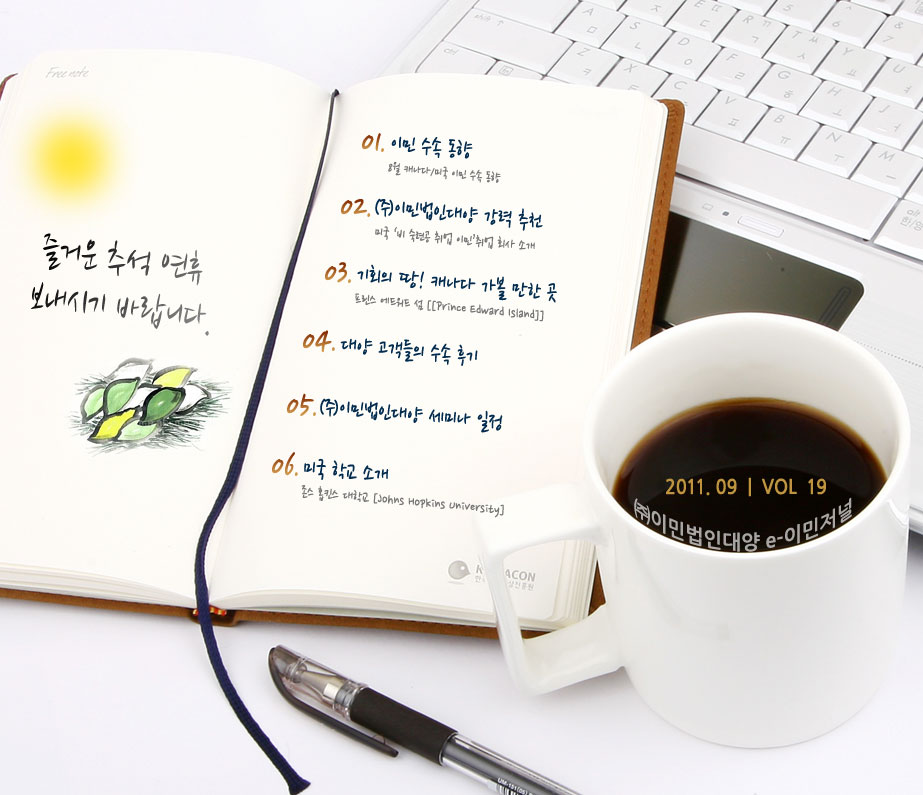 Free note
즐거운 추석 연휴
보내시기 바랍니다.
01. 이민 수속 동향
8월 캐나다/미국 이민 수속 동향
02. (주)이민법인대양 강력 추천
미국 '비 숙련공 취업 이민'취업 회사 소개
03. 기회의 땅! 캐나다 가볼 만한 곳
프린스 에드워드 섬 [[Prince Edward Island]]
04. 대양 고객들의 수속 후기
05. (주)이민법인대양 세미나 일정
06. 미국 학교 소개
존스 홉킨스 대학교 [Johns Hopkins University]
2011. 09 | VOL 19
(주)이민법인대양 e-이민저널